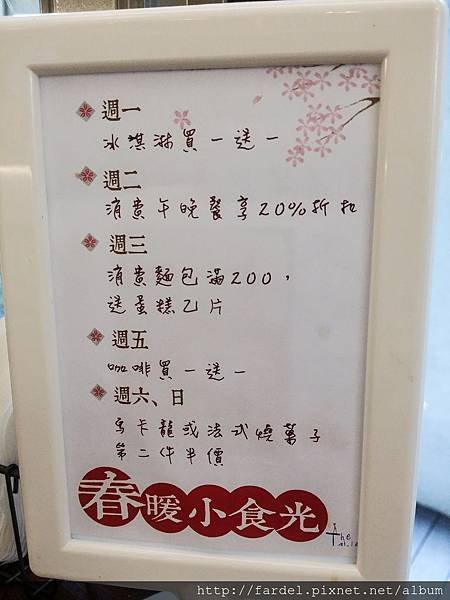 週一
冰淇淋買一送一
週二
消費午晚餐享20%折扣
週三
消費麵包滿200，
送蛋糕乙片
週五
咖啡買一送一
週六、日
馬卡龍或法式燒菓子
第二件半價
春暖小食光
The
http://fardel.pixnet.net/album